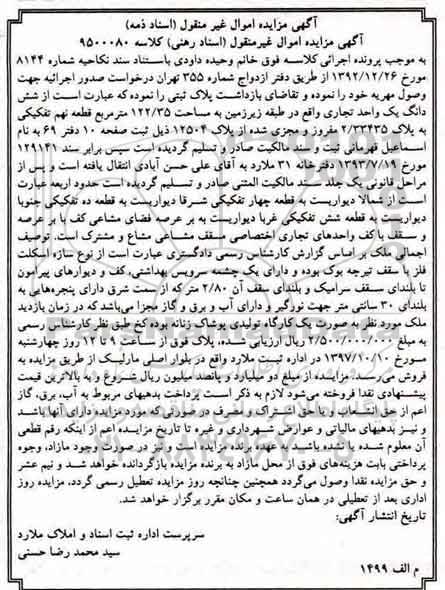 آگهی مزایده اموال غیر منقول (اسناد ذمه)
آگهی مزایده اموال غیرمنقول (اسناد رهنی) کلاسه ۹۵۰۰۰۸۰
به موجب پرونده اجرائی کلاسه فوق خانم وحیده داودی باستناد سند نکاحیه شماره ۸۱۴۴
مورخ ۱۳۹۲/۱۲/۲۶ از طریق دفتر ازدواج شماره ۳۵۵ تهران درخواست صدور اجرائیه جهت
وصول مهریه خود را نموده و تقاضای بازداشت پلاک ثبتی را نموده که عبارت است از شش
دانگ یک واحد تجاری واقع در طبقه زیرزمین به مساحت ۱۲۲/۳۵ مترمربع قطعه نهم تفکیکی
به پلاک ۲/۳۳۴۳۵ مفروز و مجزی شده از پلاک ۱۲۵۰۴ ذیل ثبت صفحه ۱۰ دفتر ۶۹ به نام
اسماعیل قهرمانی ثبت و سند مالکیت صادر و تسلیم گردیده است سپس برابر سند ۱۲۹۱۴۱
مورخ ۱۳۹۳/۷/۱۹ دفترخانه ۳۱ ملارد به آقای علی حسن آبادی انتقال یافته است و پس از
مراحل قانونی یک جلد سند مالکیت المثنی صادر و تسلیم گردیده است حدود اربعه عبارت
است از شمالا دیواریست به قطعه چهار تفکیکی شرقا دیواریست به قطعه ده تفکیکی جنوبا
دیواریست به قطعه شش تفکیکی غربا دیواریست به بر عرصه فضای مشاعی کف با بر عرصه
و سقف با کف واحدهای تجاری اختصاصی سقف مشاعی مشاع و مشترک است. توصیف
اجمالی ملک بر اساس گزارش کارشناس رسمی دادگستری عبارت است از نوع سازه اسکلت
فلز با سقف تیرچه بوک بوده و دارای یک چشمه سرویس بهداشتی، کف و دیوارهای پیرامون
تا بلندای سقف سرامیک و بلندای سقف آن ۲/۸۰ متر که از سمت شرق دارای پنجره‌هایی به
بلندای ۳۰ سانتی متر جهت نورگیر و دارای آب و برق و گاز مجزا می‌باشد که در زمان بازدید
ملک مورد نظر به صورت یک کارگاه تولیدی پوشاک زنانه بوده که طبق نظر کارشناس رسمی
به مبلغ ۲/۵۰۰/۰۰۰/۰۰۰ ریال ارزیابی شده، پلاک فوق از ساعت ۹ تا ۱۲ روز چهارشنبه
مورخ ۱۳۹۷/۱۰/۱۰ در اداره ثبت ملارد واقع در بلوار اصلی مارلیک از طریق مزایده به
فروش می‌رسد. مزایده از مبلغ دو میلیارد و پانصد میلیون ریال شروع و به بالاترین قیمت
پیشنهادی نقدا فروخته می‌شود لازم به ذکر است پرداخت بدهیهای مربوط به آب، برق، گاز
اعم از حق انشعاب و یا حق اشتراک و مصرف در صورتی که مورد مزایده دارای آنها باشد
و نیز بدهیهای مالیاتی و عوارض شهرداری و غیره تا تاریخ مزایده اعم از اینکه رقم قطعی
آن معلوم شده یا نشده باشد به عهده برنده مزایده است و نیز در صورت وجود مازاد، وجوه
پرداختی بابت هزینه‌های فوق از محل مازاد به برنده مزایده بازگردانده خواهد شد و نیم عشر
و حق مزایده نقدا وصول می‌گردد همچنین چنانچه روز مزایده تعطیل رسمی گردد، مزایده روز
اداری بعد از تعطیلی در همان ساعت و مکان مقرر برگزار خواهد شد.
تاریخ انتشار آگهی:
سرپرست اداره ثبت اسناد و املاک ملارد
سید محمد رضا حسنی
م الف ۱۴۹۹